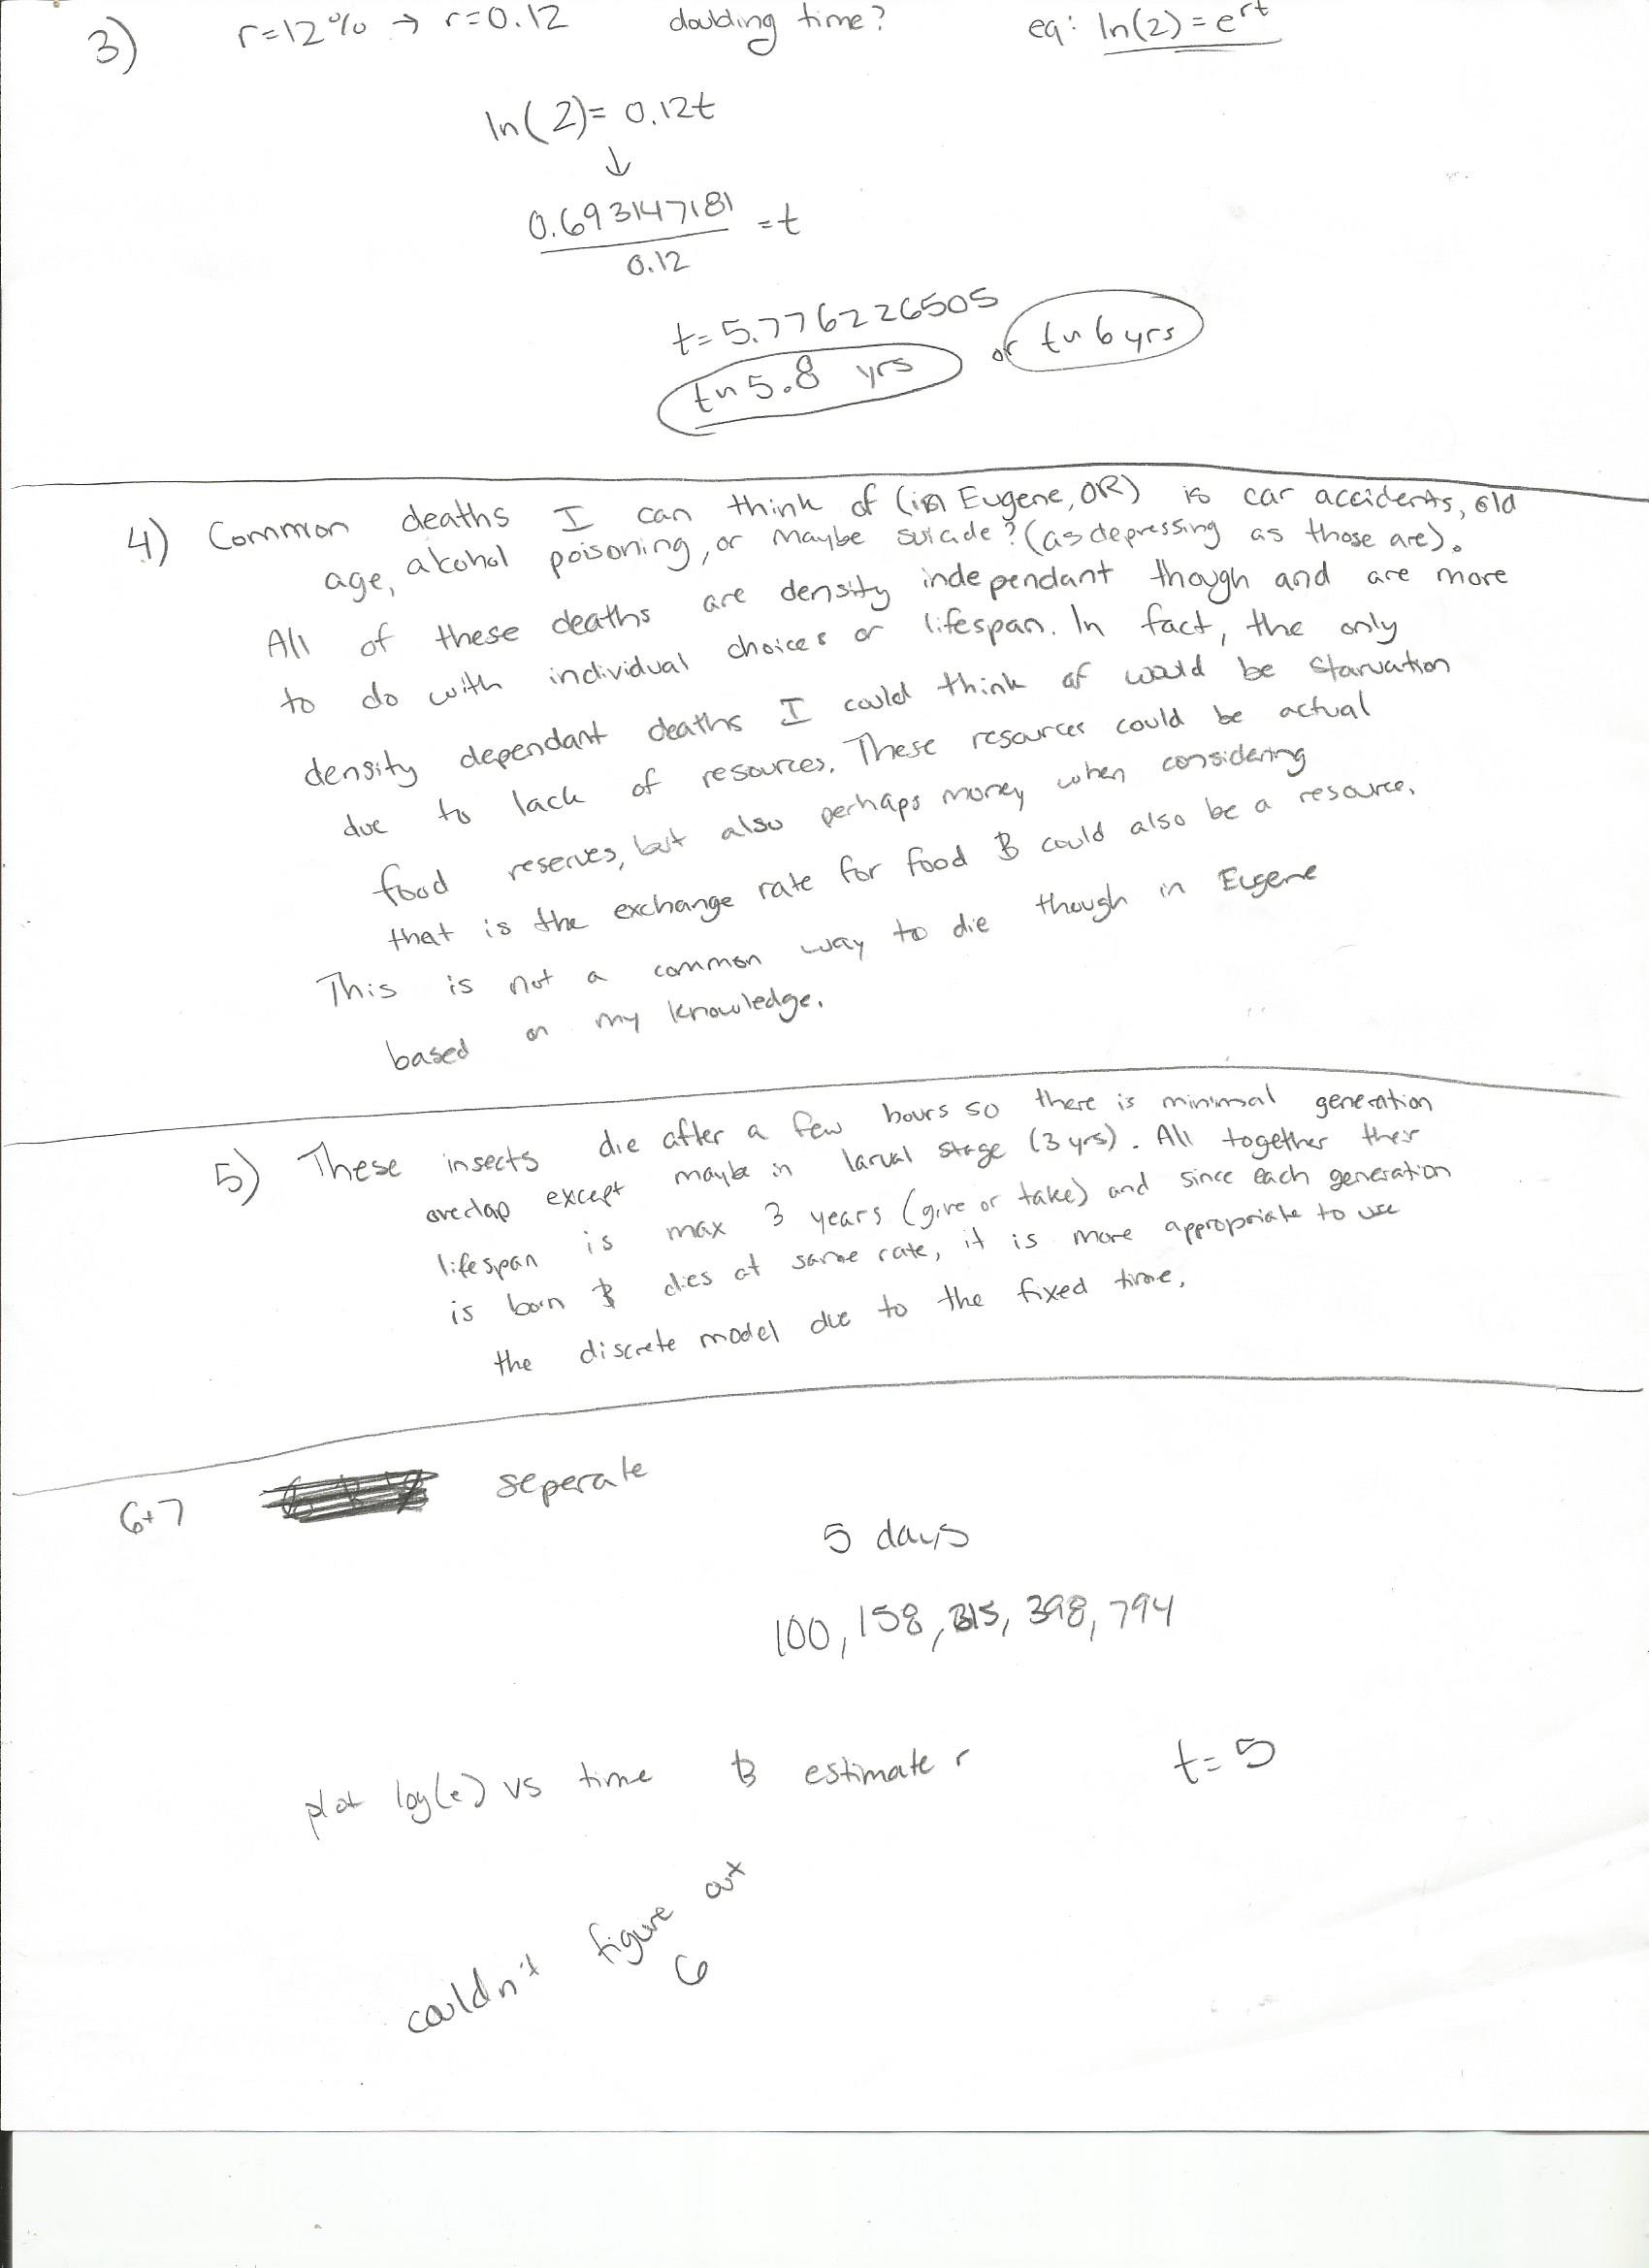 3) r=12% → r=0.12 doubling time? eq: ln(2)=e^rt
ln(2)= 0.12t
↓
0.693147181
0.12
=t
t=5.776226505
t~5.8 yrs or t~6yrs
4) Common deaths I can think of (in Eugene, OR) is car accidents, old
age, alcohol poisoning, or maybe suicide? (as depressing as those are).
All of these deaths are density independant though and are more
to do with individual choices or lifespan. In fact, the only
density dependant deaths I could think of would be starvation
due to lack of resources. These resources could be actual
food reserves, but also perhaps money when considering
that is the exchange rate for food & could also be a resource.
This is not a common way to die though in Eugene
based on my knowledge.
5) These insects die after a few hours so there is minimal generation
overlap except maybe in larval stage (3 yrs). All together their
lifespan is max 3 years (give or take) and since each generation
is born & dies at same rate, it is more appropriate to use
the discrete model due to the fixed time.
6+7 seperate
5 days
100, 158, 315, 398, 794
plot log(e) vs time & estimate r t=5
couldn't figure out
6